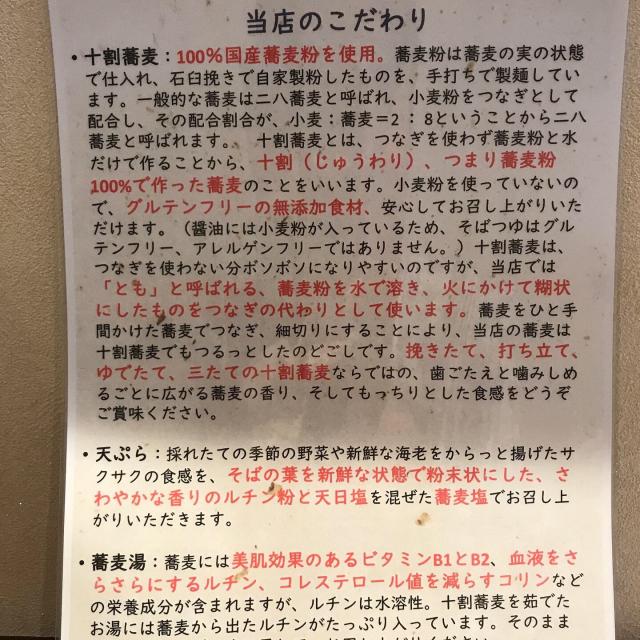 当店のこだわり
・十割蕎麦：100%国産蕎麦粉を使用。蕎麦粉は蕎麦の実の状態
で仕入れ、石臼挽きで自家製粉したものを、手打ちで製麺してい
ます。一般的な蕎麦は二八蕎麦と呼ばれ、小麦粉をつなぎとして
配合し、その配合割合が、小麦：蕎麦＝2：8ということから二八
蕎麦と呼ばれます。　十割蕎麦とは、つなぎを使わず蕎麦粉と水
だけで作ることから、十割（じゅうわり）、つまり蕎麦粉
100%で作った蕎麦のことをいいます。小麦粉を使っていないの
で、グルテンフリーの無添加食材、安心してお召し上がりいた
だけます。（醤油には小麦粉が入っているため、そばつゆはグル
テンフリー、アレルゲンフリーではありません。）十割蕎麦は、
つなぎを使わない分ボソボソになりやすいのですが、当店では
「とも」と呼ばれる、蕎麦粉を水で溶き、火にかけて糊状
にしたものをつなぎの代わりとして使います。蕎麦をひと手
間かけた蕎麦でつなぎ、細切りにすることにより、当店の蕎麦は
十割蕎麦でもつるっとしたのどごしです。挽きたて、打ち立て、
ゆでたて、三たての十割蕎麦ならではの、歯ごたえと噛みしめ
るごとに広がる蕎麦の香り、そしてもっちりとした食感をどうぞ
ご賞味ください。
・天ぷら：採れたての季節の野菜や新鮮な海老をからっと揚げたサ
クサクの食感を、そばの葉を新鮮な状態で粉末状にした、さ
わやかな香りのルチン粉と天日塩を混ぜた蕎麦塩でお召し上
がりいただきます。
・蕎麦湯：蕎麦には美肌効果のあるビタミンB1とB2、血液をさ
らさらにするルチン、コレステロール値を減らすコリンなど
の栄養成分が含まれますが、ルチンは水溶性。十割蕎麦を茹でた
お湯には蕎麦から出たルチンがたっぷり入っています。そのまま